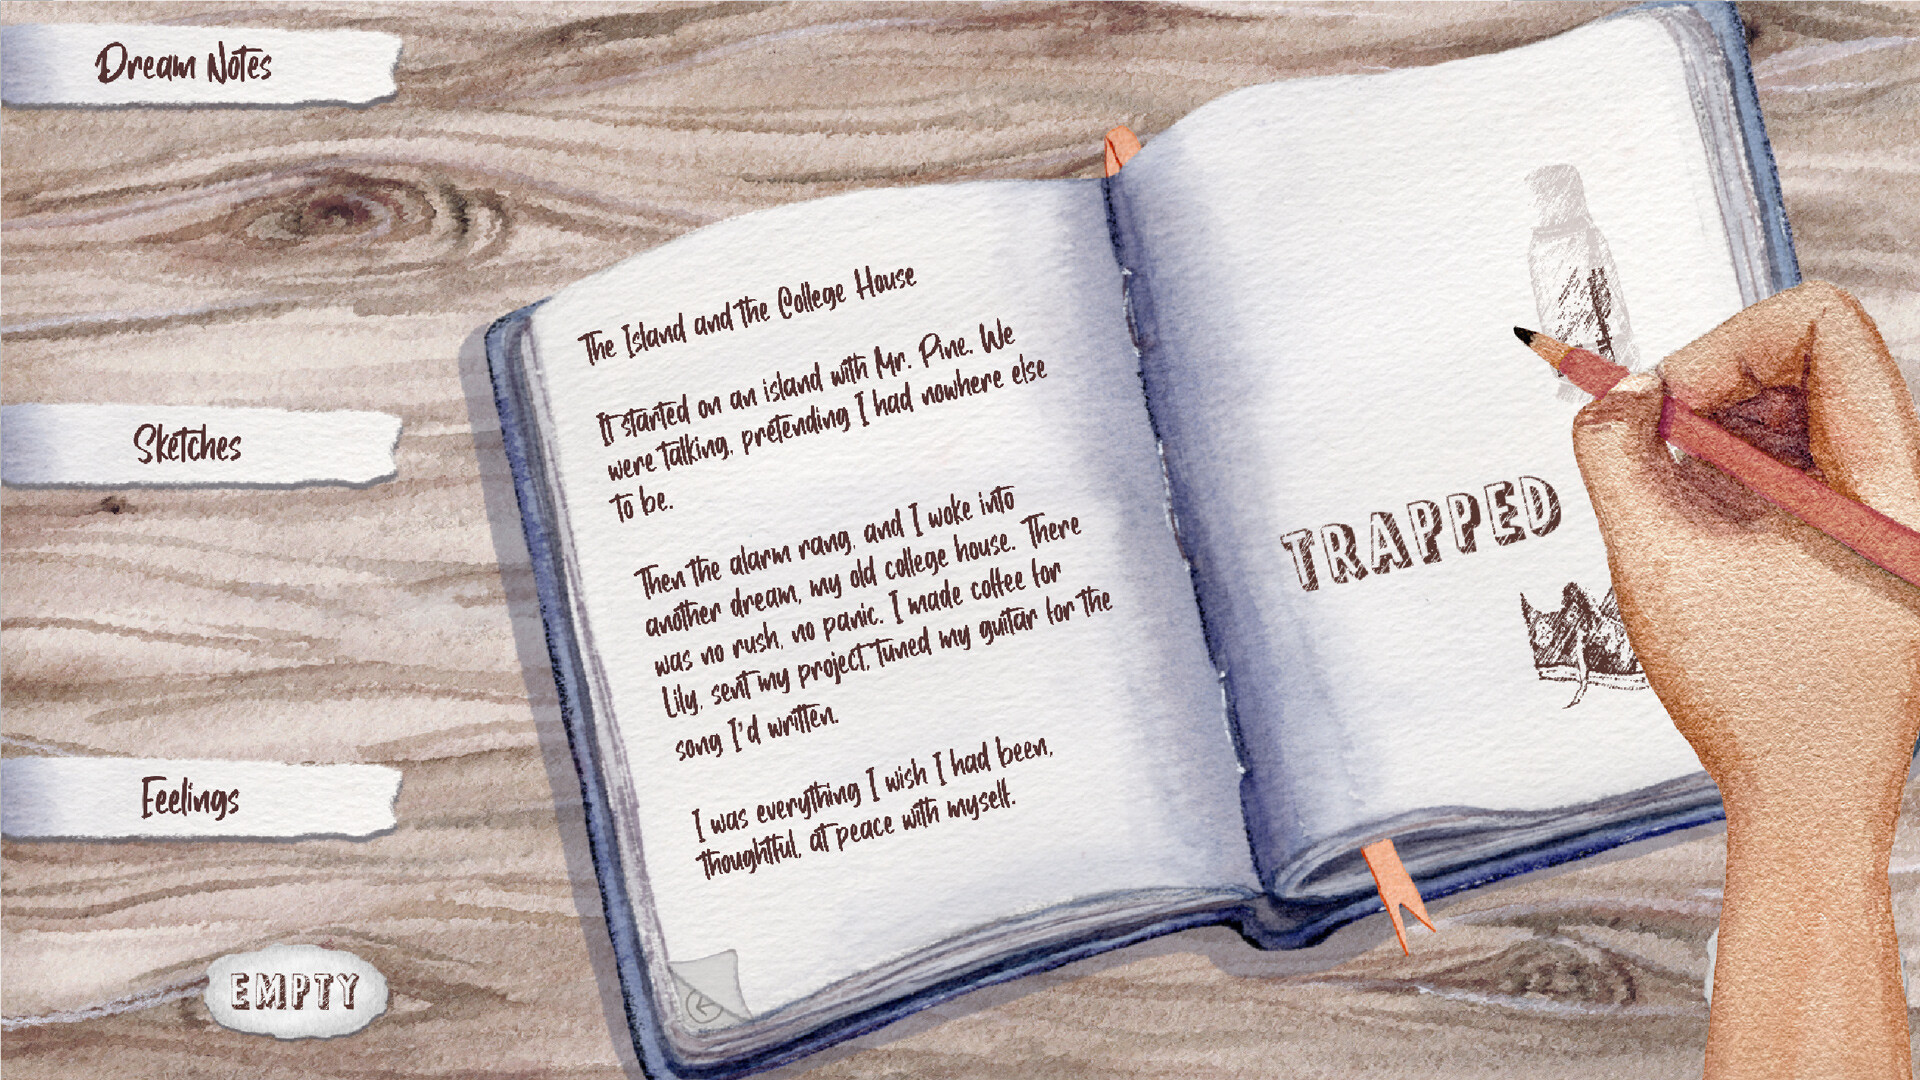 Dream Notes
Sketches
Feelings
EMPTY
The Island and the College House
It started on an island with Mr. Pine. We
were talking, pretending I had nowhere else
to be.
Then the alarm rang, and I woke into
another dream, my old college house. There
was no rush, no panic. I made coffee for
Lily, sent my project, tuned my guitar for the
song I'd written.
I was everything I wish I had been,
thoughtful, at peace with myself.
TRAPPED